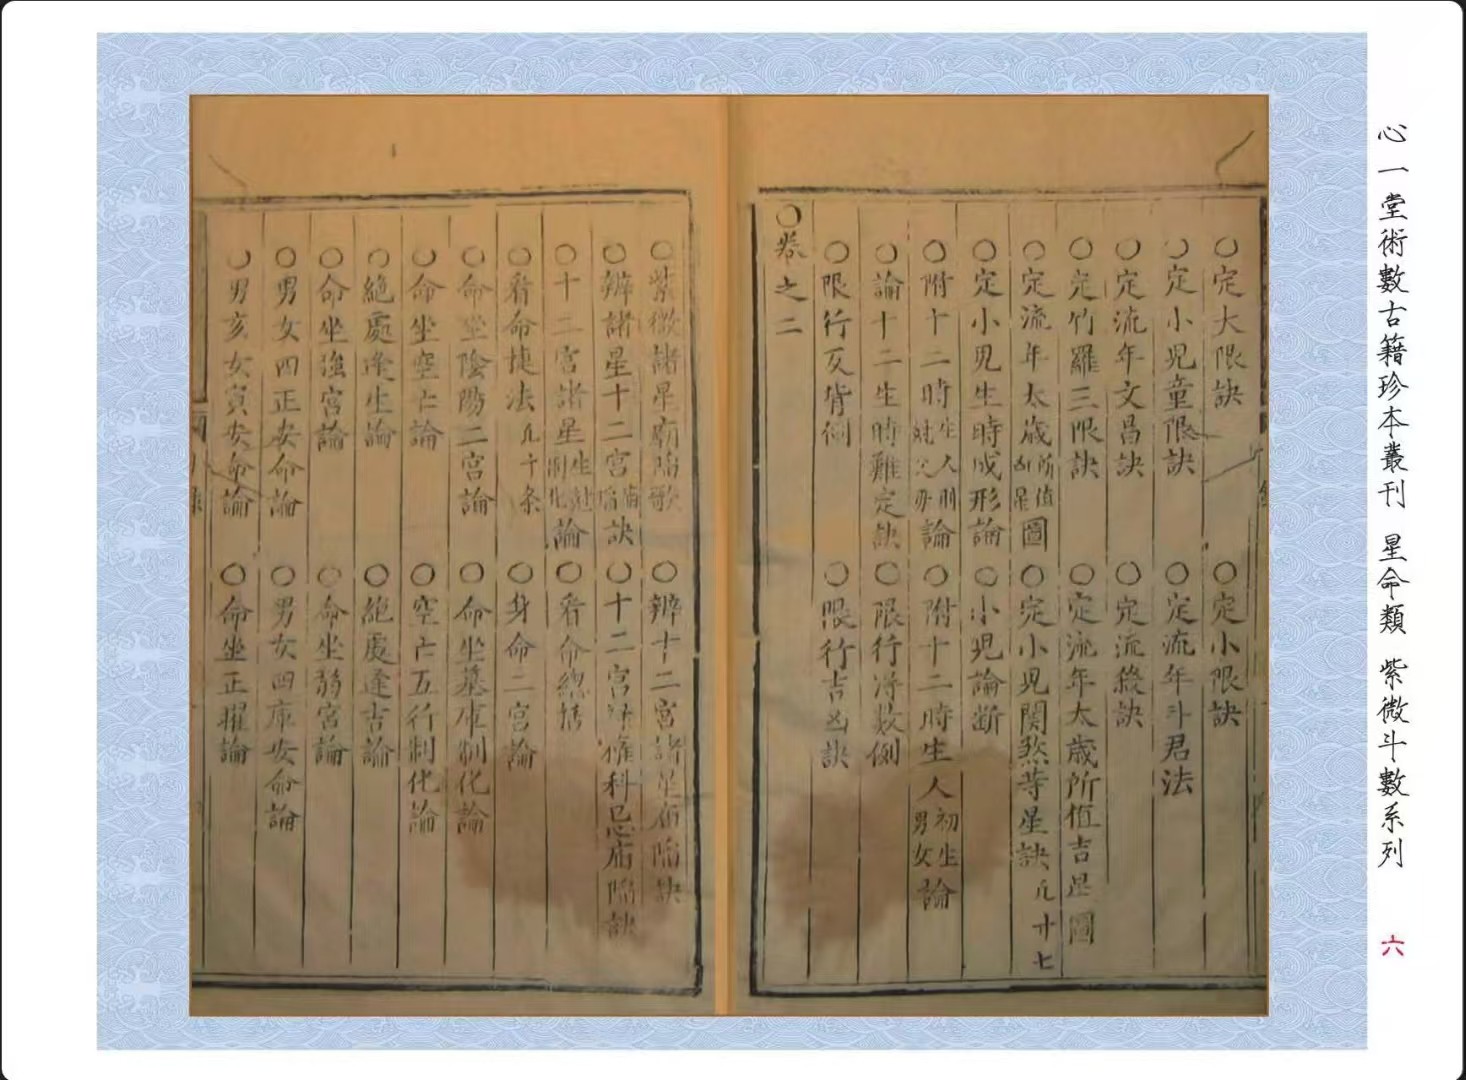 ○定大限訣　○定小限訣
○定小兒童限訣　○定流年斗君法
○定流年文昌訣　○定流祿訣
○定竹羅三限訣　○定流年太歲所值吉星圖
○定流年太歲所值凶星圖　○定小兒関煞等星訣凡廿七
○定小兒生時成形論　○小兒論斷
○附十二時生人剋父母論　○附十二時生人初生男女論
○論十二生時難定訣　○限行得數例
○限行反背例　○限行吉凶訣
○卷之二
○紫微諸星廟陷歌　○辨十二宮諸星廟陷訣
○辨諸星十二宮廟陷訣　○十二宮祿權科忌廟陷訣
○十二宮諸星生剋制化論　○看命總括
○看命捷法凡十条　○身命二宮論
○命坐陰陽二宮論　○命坐墓庫制化論
○命坐空亡論　○空亡五行制化論
○絕處逢生論　○絕處逢吉論
○命坐強宮論　○命坐弱宮論
○男女四正安命論　○男女四庫安命論
○男亥女寅安命論　○命坐正曜論
心一堂術數古籍珍本叢刊　星命類　紫微斗數系列
六